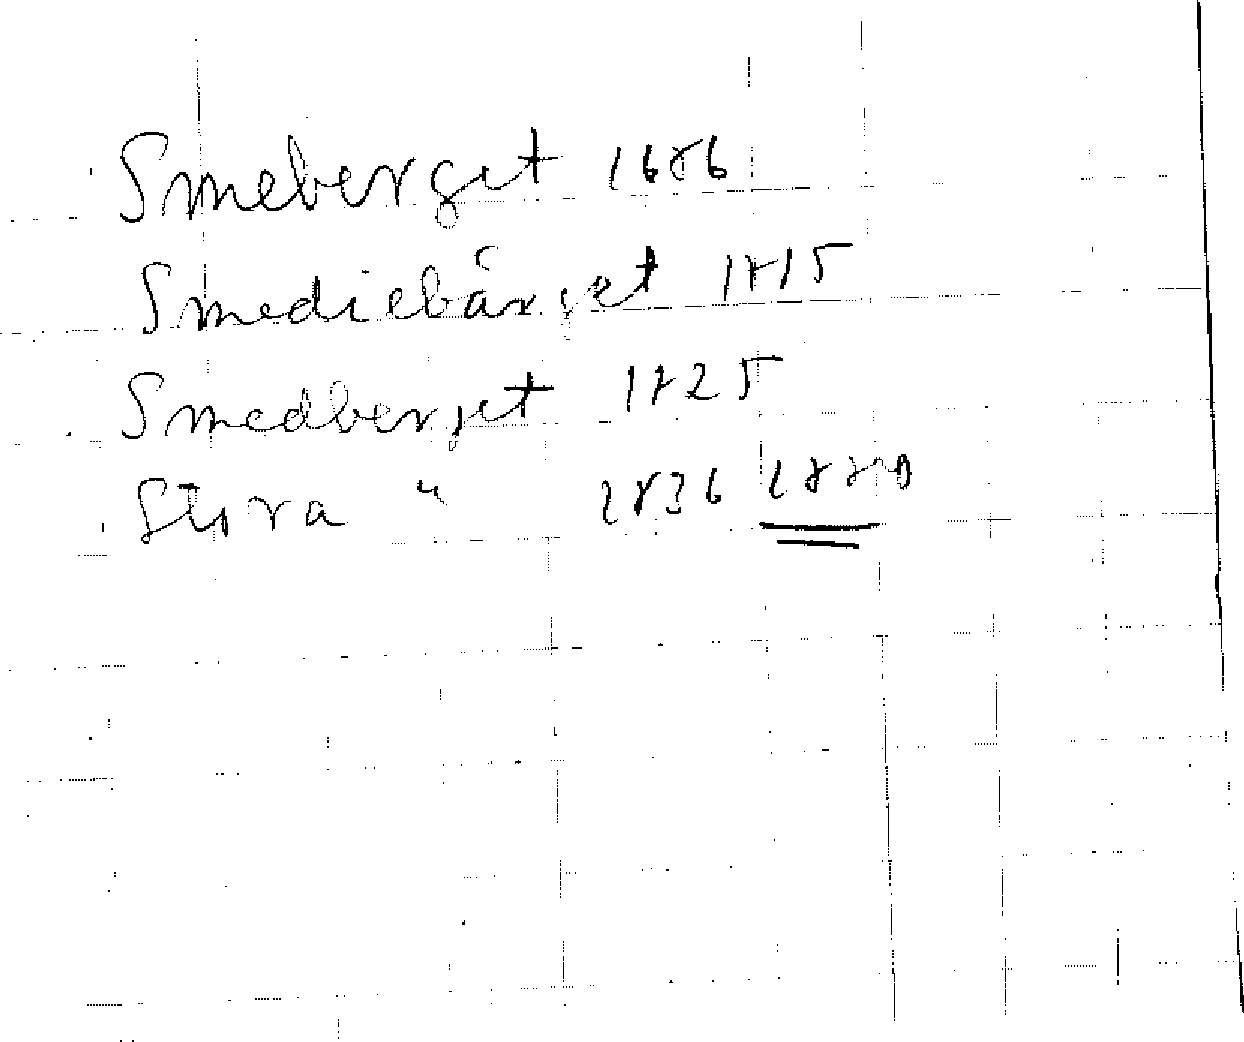 Smeberget 1686
Smediebärget 1815
Smedberget 1825
Stora " 1836 1880